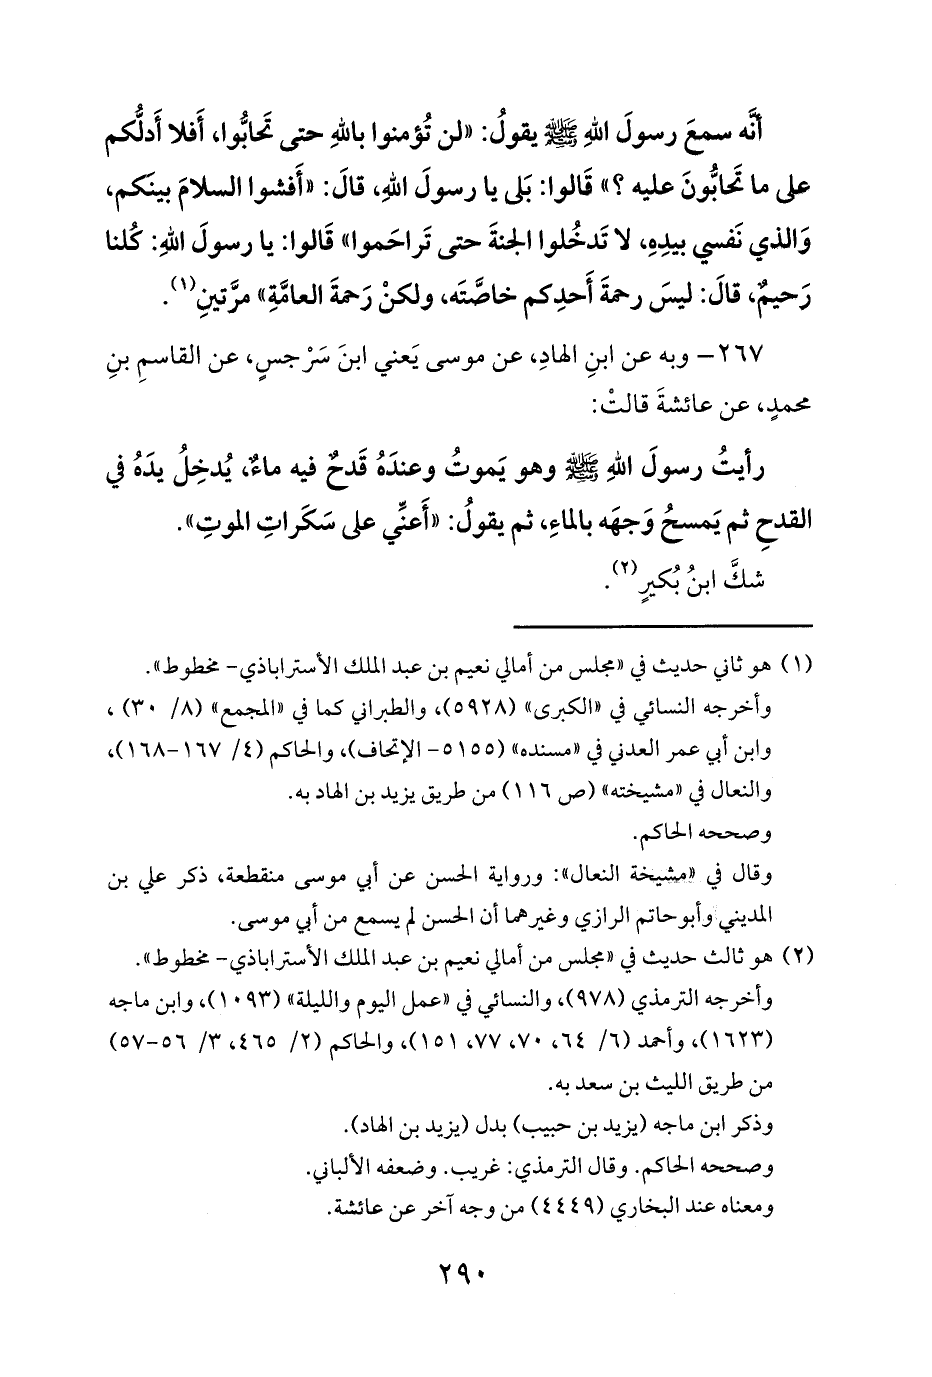 أنَّه سمعَ رسولَ اللهِ ﷺ يقولُ: «لن تُؤمنوا باللهِ حتى تَحابُّوا، أَفلا أَدلُّكم
على ما تَحابُّونَ عليه ؟» قَالوا: بَلى يا رسولَ اللهِ، قالَ: «أَفشوا السلامَ بينَكم،
وَالذي نَفسي بيدِهِ، لا تَدخُلوا الجنةَ حتى تَراحَموا» قَالوا: يا رسولَ اللهِ: كُلنا
رَحيمٌ، قالَ: ليسَ رحمةَ أَحدِكم خاصَّتَه، ولكنْ رَحمةَ العامَّةِ» مرَّتينِ(١).
٢٦٧- وبه عن ابنِ الهادِ، عن موسى يَعني ابنَ سَرْجسٍ، عن القاسمِ بنِ
محمدٍ، عن عائشةَ قالتْ:
رأيتُ رسولَ اللهِ ﷺ وهو يَموتُ وعندَهُ قَدحٌ فيه ماءٌ، يُدخِلُ يدَهُ في
القدحِ ثم يَمسحُ وَجهَه بالماءِ، ثم يقولُ: «أَعنِّي على سَكَراتِ الموتِ».
شكَّ ابنُ بُكيرٍ(٢).
(١) هو ثاني حديث في «مجلس من أمالي نعيم بن عبد الملك الأستراباذي- مخطوط».
وأخرجه النسائي في «الكبرى» (٥٩٢٨)، والطبراني كما في «المجمع» (٨/ ٣٠) ،
وابن أبي عمر العدني في «مسنده» (٥١٥٥- الإتحاف)، والحاكم (٤/ ١٦٧-١٦٨)،
والنعال في «مشيخته» (ص ١١٦) من طريق يزيد بن الهاد به.
وصححه الحاكم.
وقال في «مشيخة النعال»: ورواية الحسن عن أبي موسى منقطعة، ذكر علي بن
المديني وأبوحاتم الرازي وغيرهما أن الحسن لم يسمع من أبي موسى.
(٢) هو ثالث حديث في «مجلس من أمالي نعيم بن عبد الملك الأستراباذي- مخطوط».
وأخرجه الترمذي (٩٧٨)، والنسائي في «عمل اليوم والليلة» (١٠٩٣)، وابن ماجه
(١٦٢٣)، وأحمد (٦/ ٦٤، ٧٠، ٧٧، ١٥١)، والحاكم (٢/ ٤٦٥، ٣/ ٥٦-٥٧)
من طريق الليث بن سعد به.
وذكر ابن ماجه (يزيد بن حبيب) بدل (يزيد بن الهاد).
وصححه الحاكم. وقال الترمذي: غريب. وضعفه الألباني.
ومعناه عند البخاري (٤٤٤٩) من وجه آخر عن عائشة.
٢٩٠